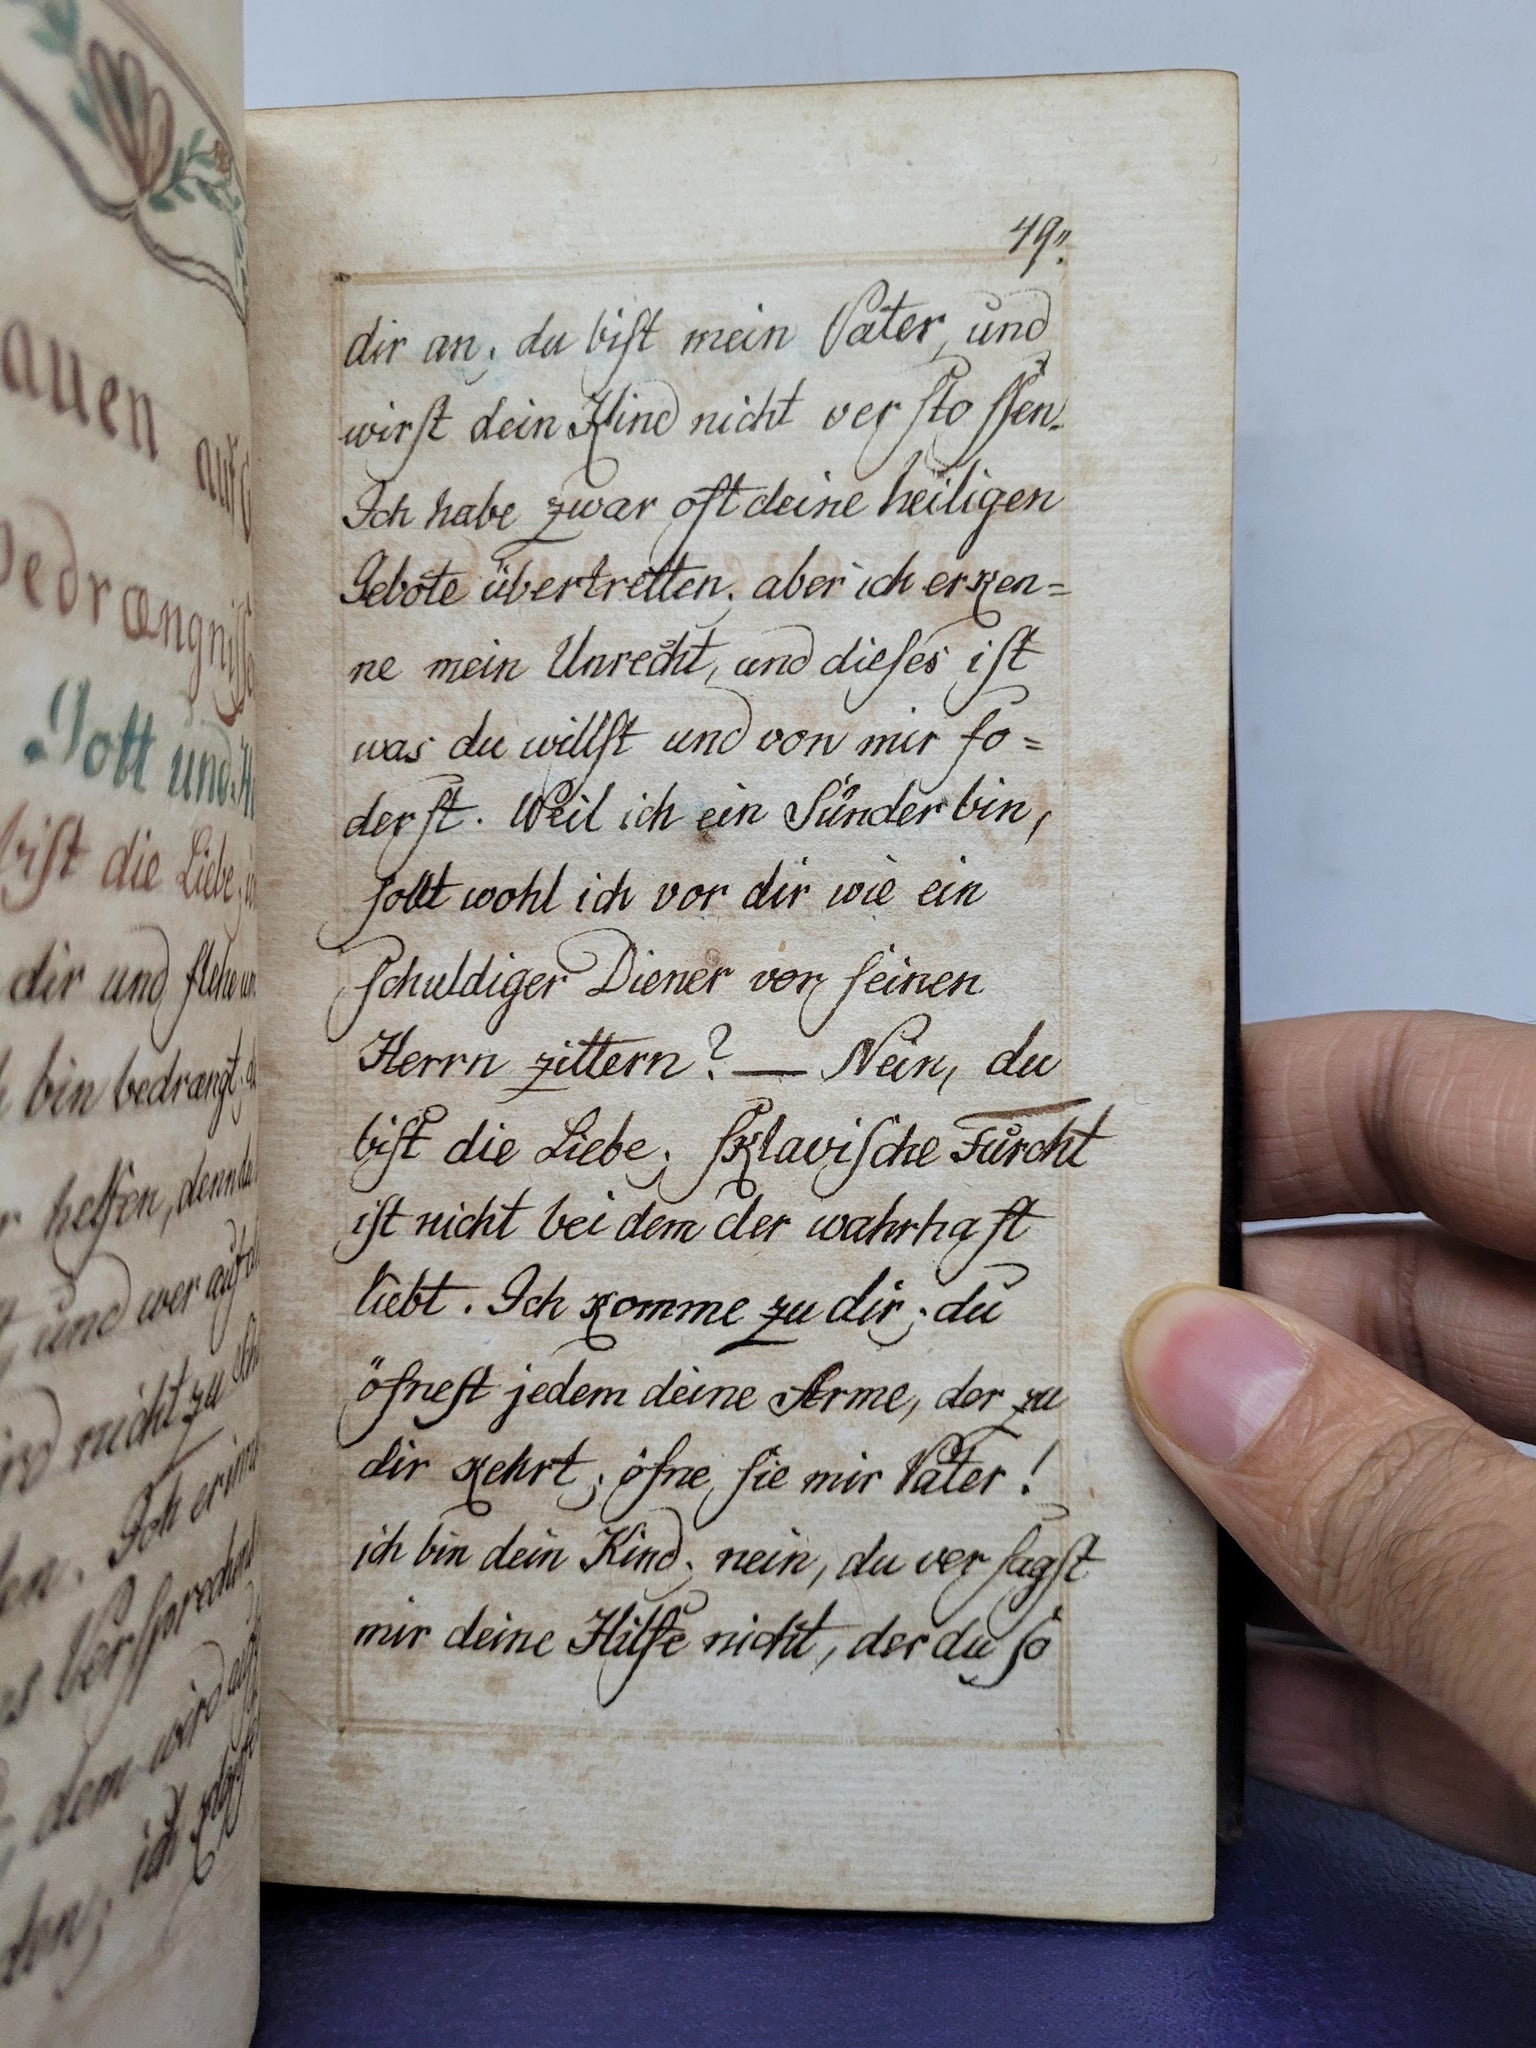 auen auf
Bedrængnisse
Gott und
bist die Liebe,
dir und flehe
bin bedrængt,
helfen, denn du
und wer auf
nicht zu
Ich
Versprechen
dem wird
ich
49"
dir an; du bist mein Vater, und
wirst dein Kind nicht ver stossen.
Ich habe zwar oft deine heiligen
Gebote übertretten; aber ich erken=
ne mein Unrecht, und dieses ist
was du willst und von mir fo=
derst. Weil ich ein Sünder bin,
sollt wohl ich vor dir wie ein
schuldiger Diener vor seinen
Herrn zittern? — Nein, du
bist die Liebe; sklavische Furcht
ist nicht bei dem der wahrhaft
liebt. Ich komme zu dir; du
öfnest jedem deine Arme, der zu
dir kehrt; öfne sie mir Vater!
ich bin dein Kind; nein, du versagst
mir deine Hilfe nicht, der du so